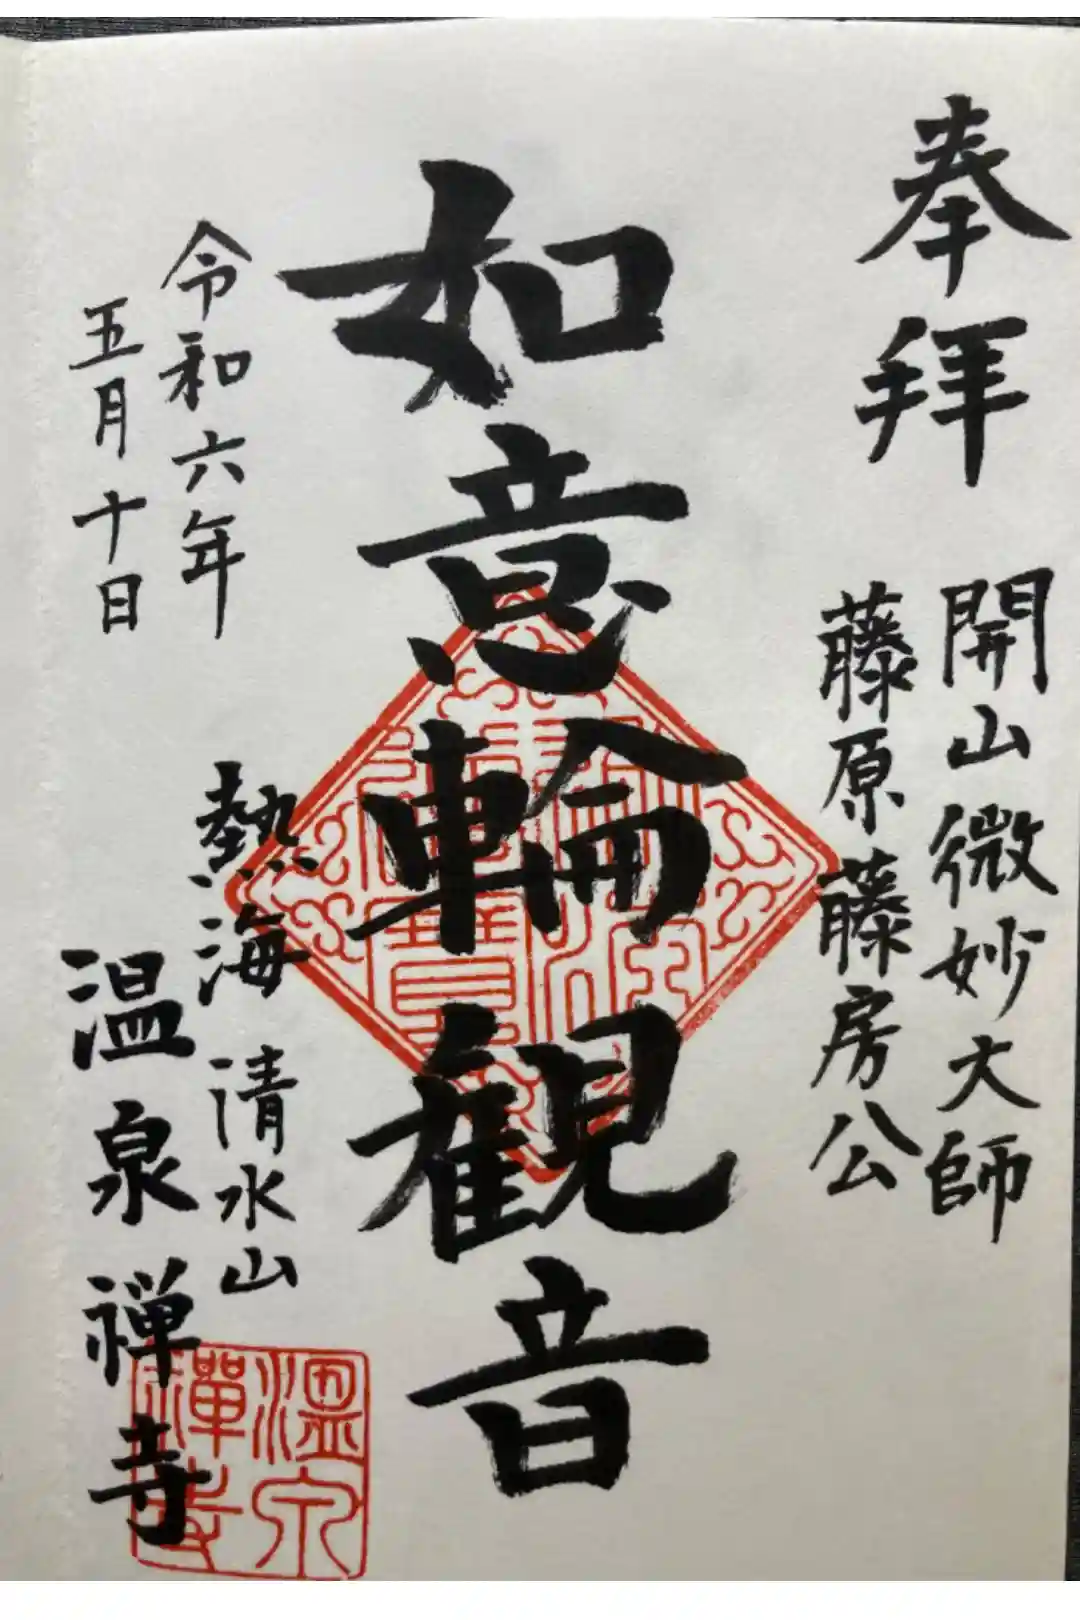 奉拝
開山微妙大師
藤原藤房公
如意輪観音
令和六年
五月十日
熱海 清水山
温泉禅寺
温泉禪寺